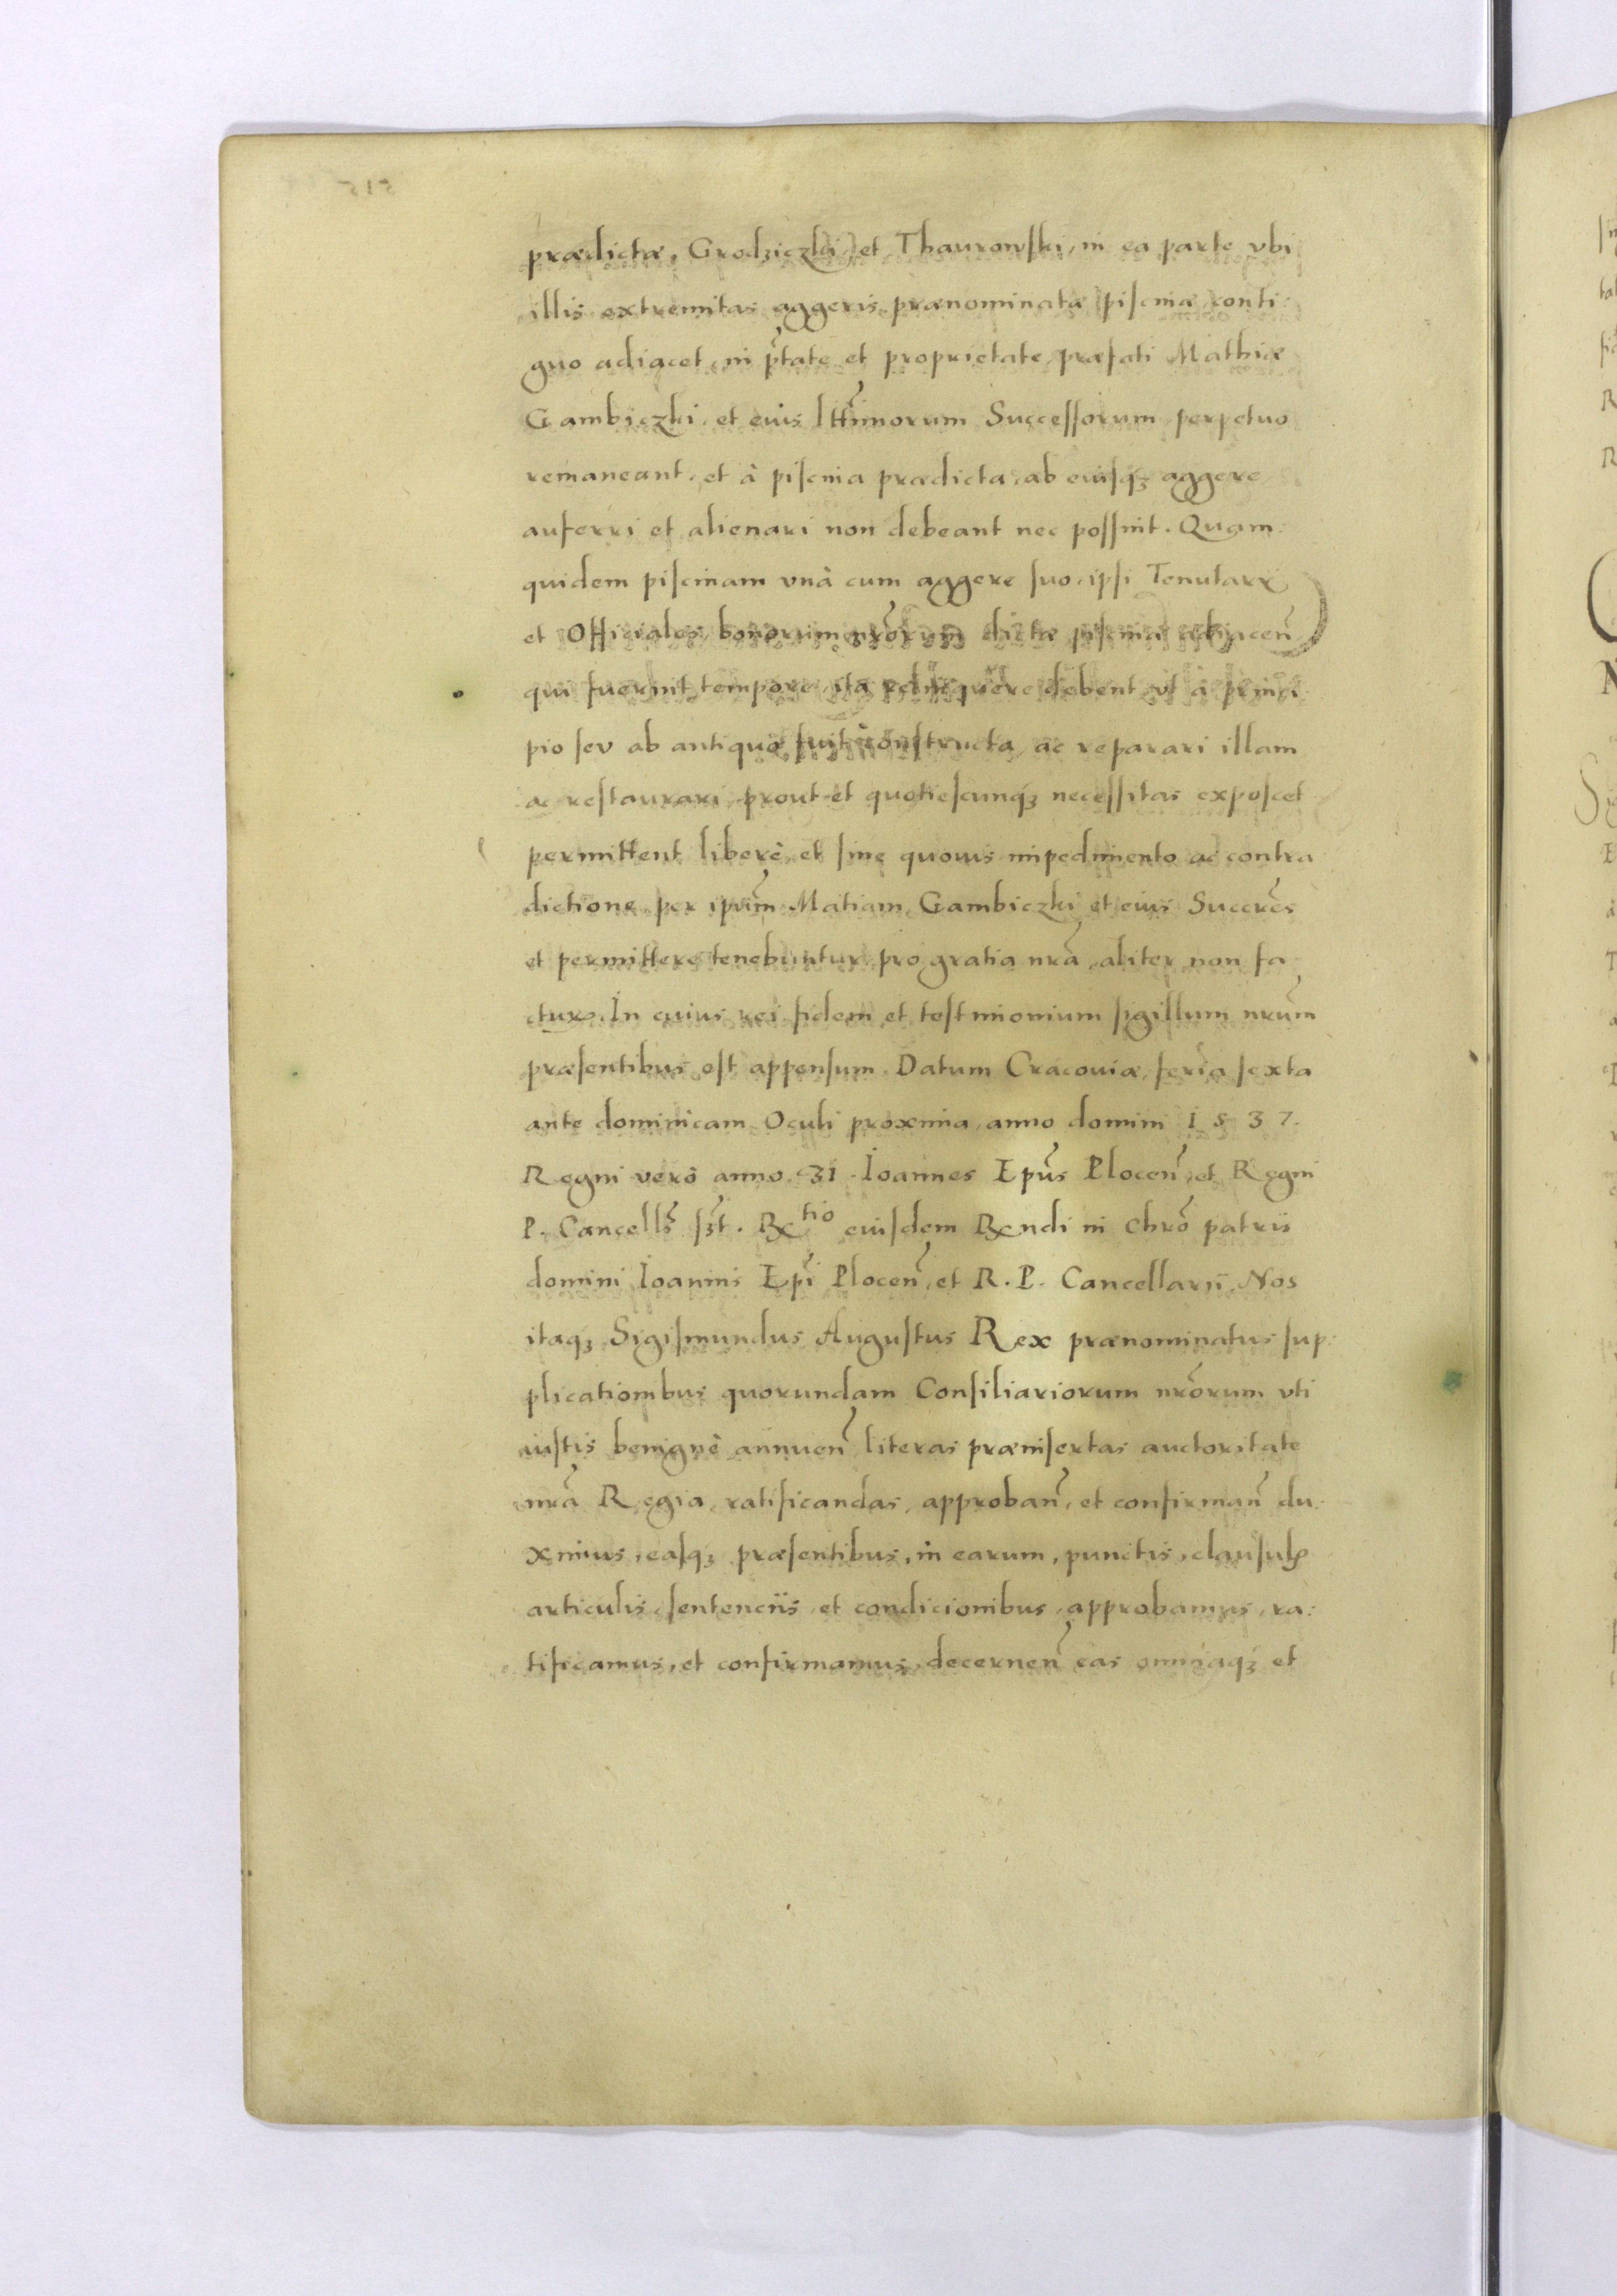 prædictæ, Grodziczki, et Thaurowski, in ea parte vbi
illis extremitas aggeris prænominatæ piscinæ conti:
guo adiacet, in ptate et proprietate præfati Mathiæ
Gambiczki, et eius lttimorum Successorum perpetuo
remaneant, et à piscina prædicta, ab eiusq; aggere
auferri et alienari non debeant nec possint. Quam:
quidem piscinam vnà cum aggere suo, ipsi Tenutarii
et Officiales bonorum nrorum dictæ piscinæ adiacen
qui fuerint tempore, ita relinquere debent, vt à princi
pio seu ab antiquo fuit constructa, ac reparari illam
ac restaurari, prout et quotiescunq; necessitas exposcet
permittent liberè, et sine quouis impedimento ac contra
dictione, per ipsum Matiam Gambiczki et eius Succres
et permittere tenebuntur, pro gratia nra, aliter non fa
ctur. In cuius rei fidem et testimonium sigillum nrum
præsentibus est appensum. Datum Cracouiæ, feria sexta
ante dominicam Oculi proxima, anno domini 1537.
Regni verò anno 31. Ioannes Epus Plocen, et Regni
P. Cancells sst. Rtio eiusdem Rndi in Chro patris
domini Ioannis Epi Plocen, et R. P. Cancellarii. Nos
itaq; Sigismundus Augustus Rex prænominatus sup:
plicationibus quorundam Consiliariorum nrorum vti
iustis benignè annuen literas præinsertas auctoritate
nra Regia, ratificandas, approban, et confirman du:
ximus, easq; præsentibus, in earum, punctis, clausulis
articulis, sentenciis, et condicionibus, approbamus, ra:
tificamus, et confirmamus, decernen eas omniaq; et